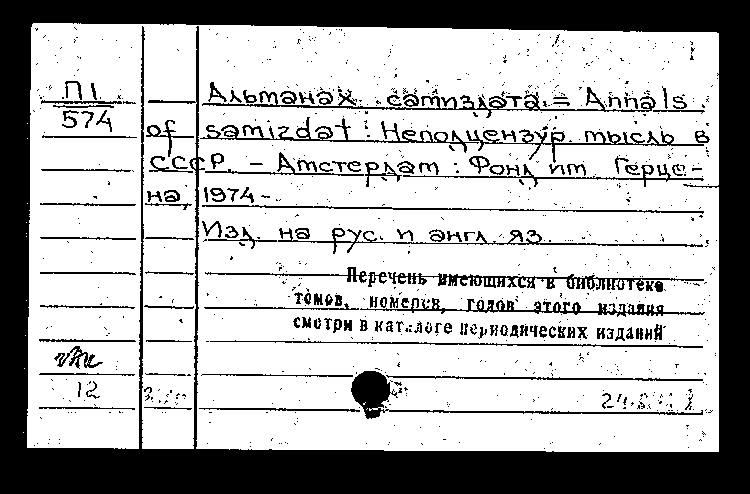 П1
574
Альманах самиздата = Annals
of samizdat : Неподцензур. мысль в
СССР. – Амстердам : Фонд им Герце-
на, 1974-
Изд. на рус. и англ. яз.
Перечень имеющихся в библиотеке
томов, номеров, годов этого издания
смотри в каталоге периодических изданий
12